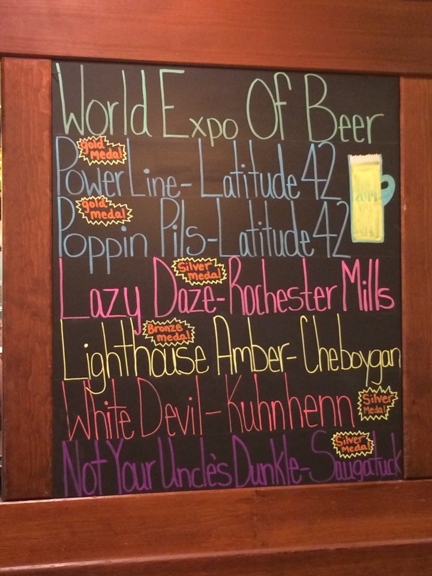 World Expo Of Beer
gold medal!
PowerLine- Latitude 42
gold medal!
Poppin Pils-Latitude 42
Silver medal
Lazy Daze-Rochester Mills
Bronze medal!
Lighthouse Amber-Cheboygan
White Devil - Kuhnhenn
Silver Medal
Silver Medal
Not Your Uncle's Dunkle-Saugatuck